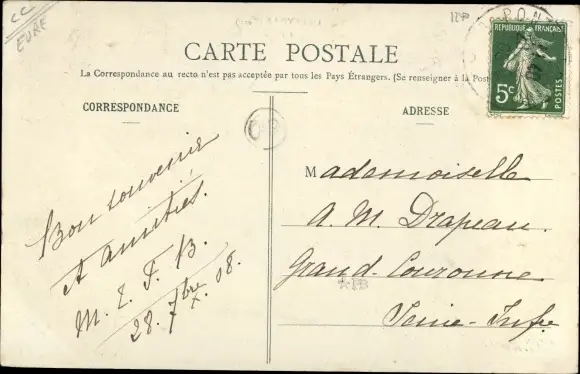 CC
EURE
CARTE POSTALE
La Correspondance au recto n'est pas acceptée par tous les Pays Étrangers. (Se renseigner à la Poste
CORRESPONDANCE
ADRESSE
REPUBLIQUE FRANÇAISE
5c
POSTES
OB
Bon souvenir
et amitiés.
M. E. F. B.
28. 7bre 08.
Mademoiselle
A. M. Drapeau.
Grand-Couronne
Seine-Infre